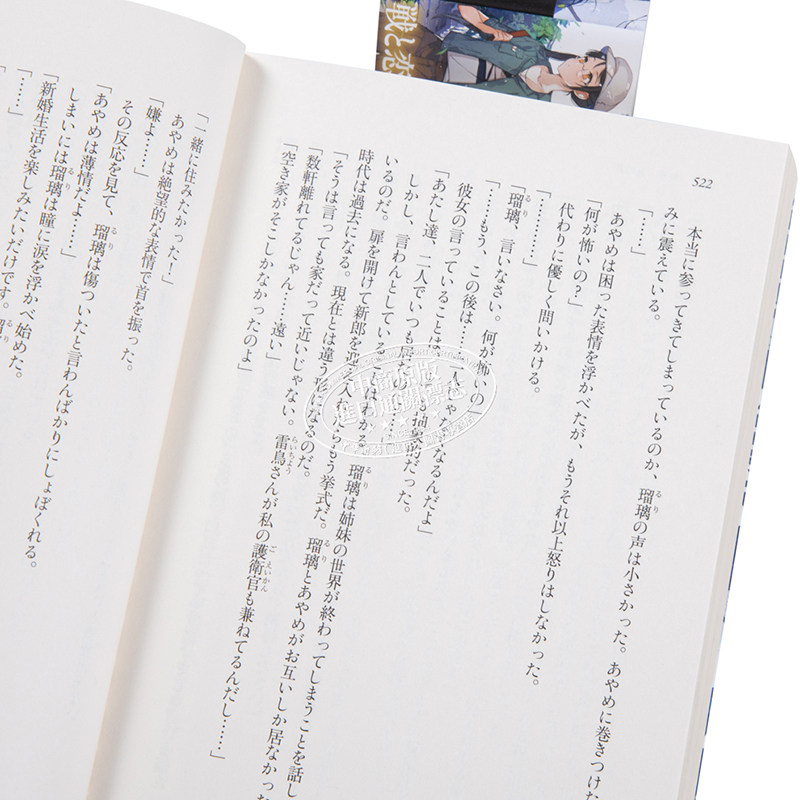 戦と恋
522
本当に参ってきてしまっているのか、瑠璃の声は小さかった。あやめに巻きつけた
みに震えている。
「……」
あやめは困った表情を浮かべたが、もうそれ以上怒りはしなかった。
「何が怖いの？」
代わりに優しく問いかける。
「……」
「瑠璃、言いなさい。何が怖いの」
「……もう、この後は……二人じゃなくなるんだよ」
彼女の言っていることは
抽象的だった。
「あたし達、二人でいつも
……」
しかし、言わんとしていることはわかる。瑠璃は姉妹の世界が終わってしまうことを話し
いるのだ。扉を開けて新郎を迎え入れたらもう挙式だ。瑠璃とあやめがお互いしか居なかった
時代は過去になる。現在とは違う形になるのだ。
「そうは言っても家だって近いじゃない。雷鳥さんが私の護衛官も兼ねてるんだし……」
「数軒離れてるじゃん……遠い」
「空き家がそこしかなかったのよ」
「一緒に住みたかった！」
あやめは絶望的な表情で首を振った。
「嫌よ……」
その反応を見て、瑠璃は傷ついたと言わんばかりにしょぼくれる。
「あやめは薄情だよ……」
しまいには瑠璃は瞳に涙を浮かべ始めた。
「新婚生活を楽しみたいだけです。
「……」